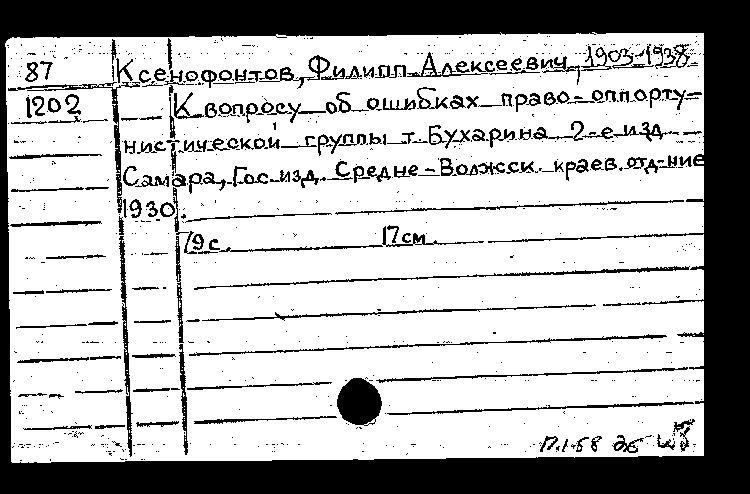 87 Ксенофонтов, Филипп Алексеевич, 1903-1938
1202 К вопросу об ошибках право-оппорту-
нистической группы т. Бухарина 2-е изд
Самара, Гос. изд. Средне-Волжск. краев. отд-ние
1930.
79с. 17см.
17.1.68